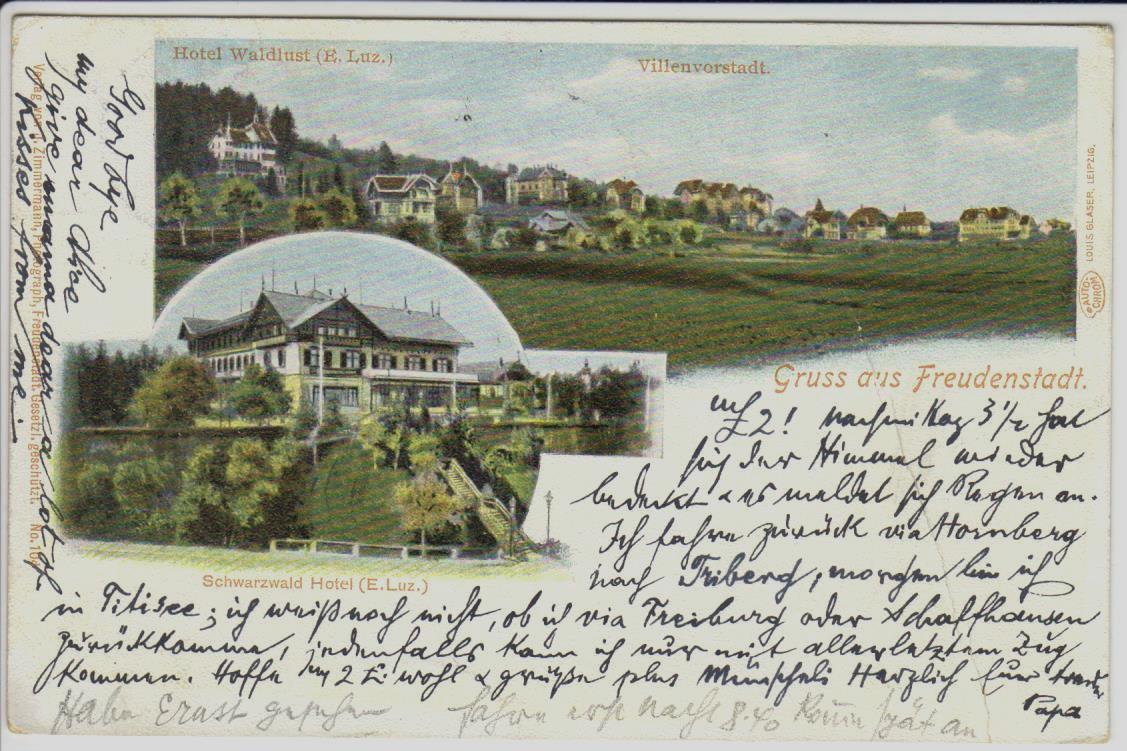 Hotel Waldlust (E. Luz.)
Villenvorstadt.
Goodbye
my dear Alice
give mama dear a lot of
kisses from me
Verlag von J. Zimmermann, Photograph, Freudenstadt. Gesetzl. geschützt. No. 10
AUTO-CHROM
LOUIS GLASER, LEIPZIG.
Gruss aus Freudenstadt.
2! nachmittag 3 1/2 hat
sich der Himmel wieder
bedeckt & es meldet sich Regen an.
Ich fahre zurück via Hornberg
nach Triberg, morgen bin ich
Schwarzwald Hotel (E. Luz.)
in Titisee; ich weiß noch nicht, ob ich via Freiburg oder Schaffhausen
zurückkomme, jedenfalls kann ich nur mit allerletztem Zug
kommen. Hoffe 2 wohl & grüße Herzlich Euer
Papa
Habe Ernst gesehen fahre erst nachts 8.40 komme spät an